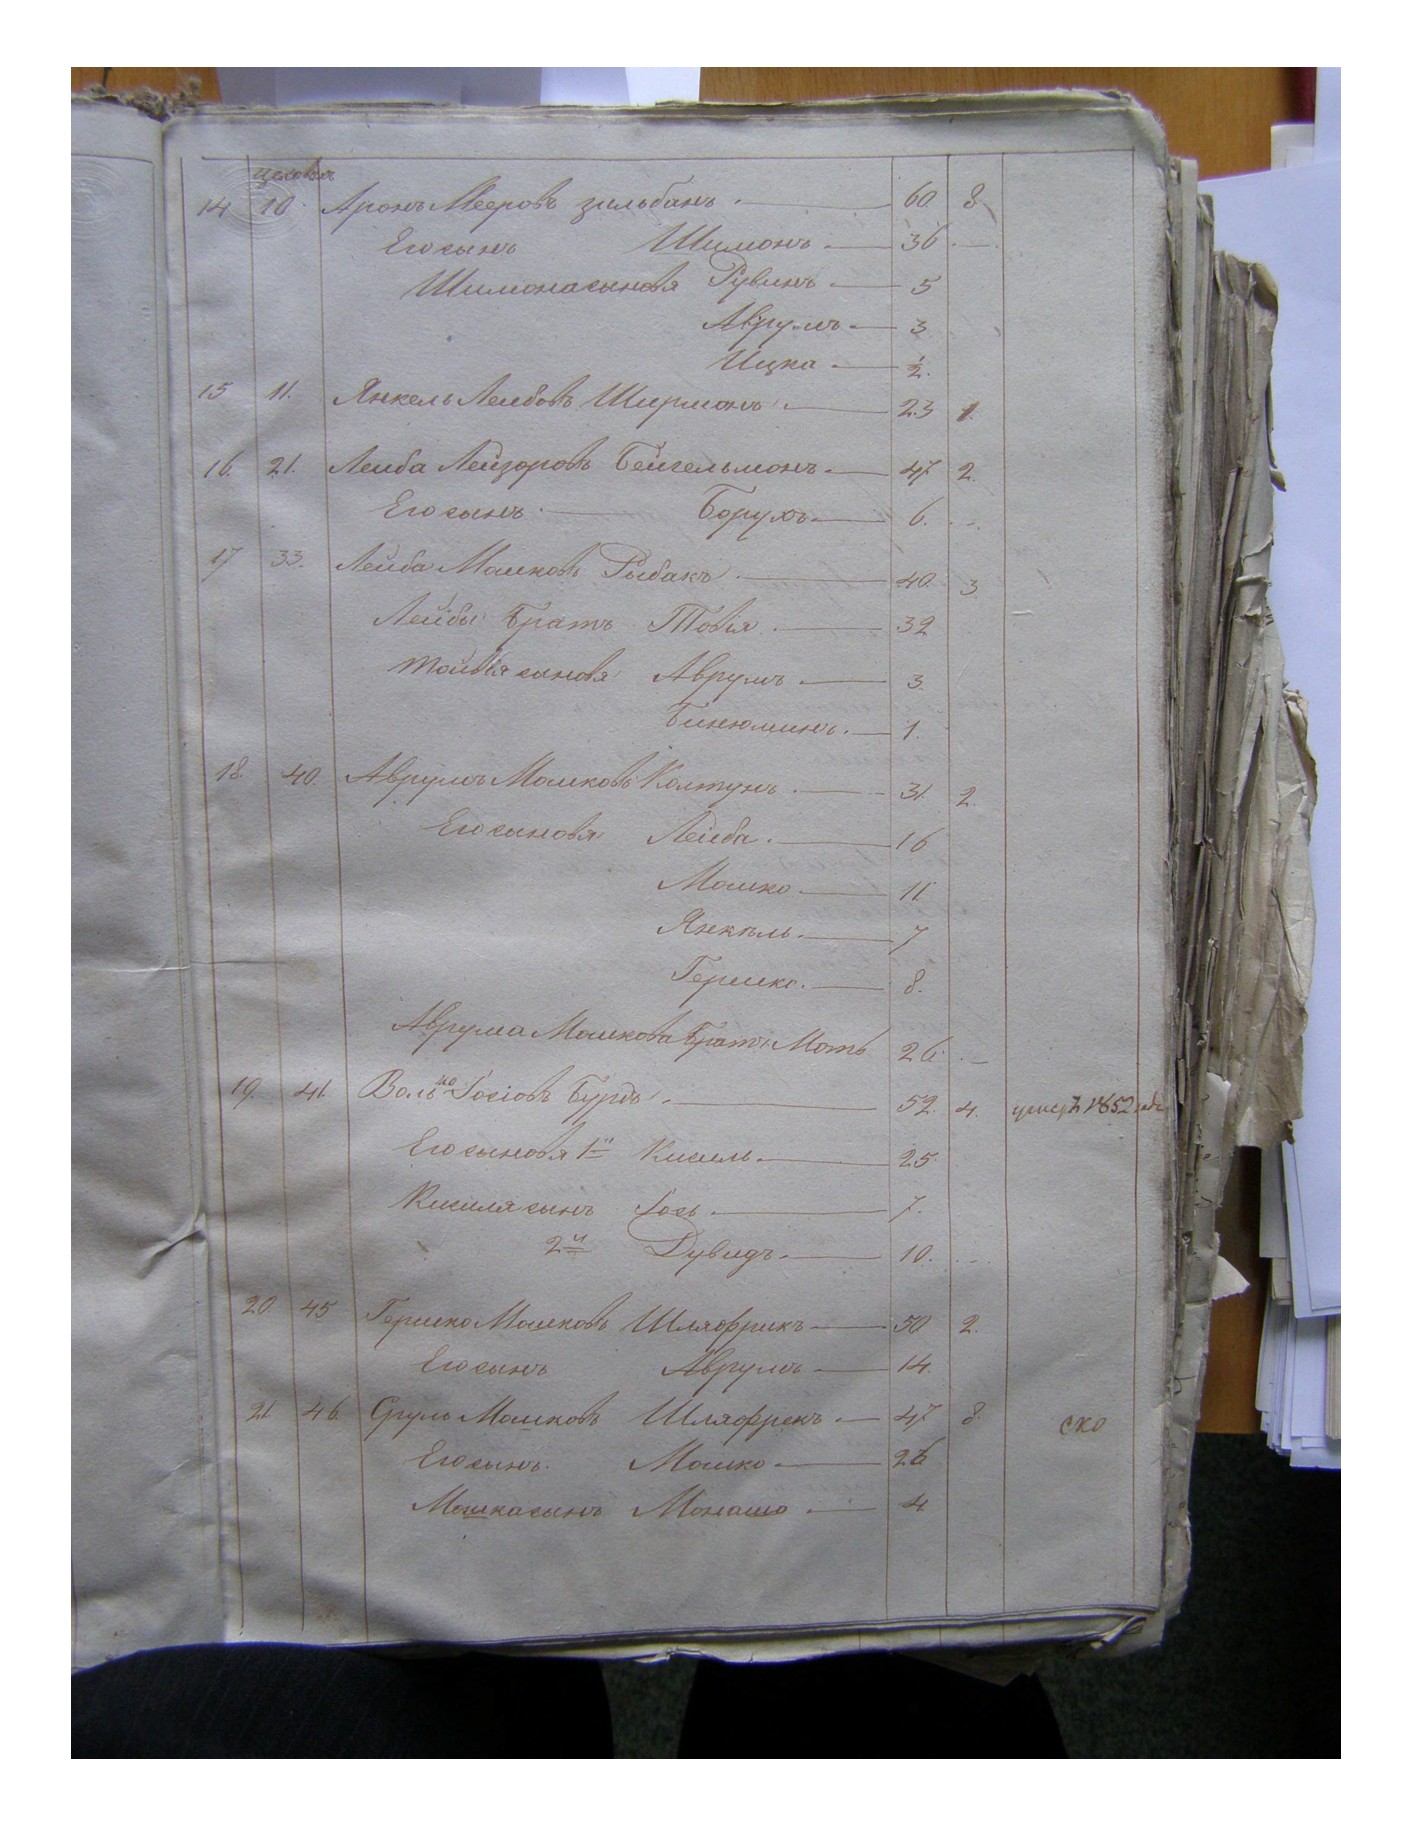 14 10 Аронъ Мееровъ Зильбанъ 60 8
Его сынъ Шимонъ 36
Шимона сыновя Рувинъ 5
Аврумъ 3
Ицка ½
15 11. Янкель Лейбовъ Ширманъ 23 1.
16. 21. Лейба Лейзоровъ Бейгельмонъ 47 2.
Его сынъ Борухъ 6.
17 33. Лейба Мошковъ Рыбакъ 40. 3
Лейбы Братъ Товія 32
Товія сыновя Аврумъ 3
Бинюминъ 1
18. 40. Аврумъ Мошковъ Колтунъ 31. 2.
Его сыновя Лейба 16
Мошко 11
Янкель 7
Гершко 8.
Аврума Мошкова Братъ Моть 26.
19. 41. Воль Іосіовъ Бурдъ 52. 4. 1852 года
Его сыновя 1й Кисиль 25
Кисиля сынъ Іось 7.
2й Дувидъ 10.
20. 45 Гершко Мошковъ Шляфрикъ 50 2.
Его сынъ Аврумъ 14.
21. 46. Сруль Мошковъ Шляфрекъ 47 8. ско
Его сынъ Мошко 26
Мошка сынъ Монашо 4